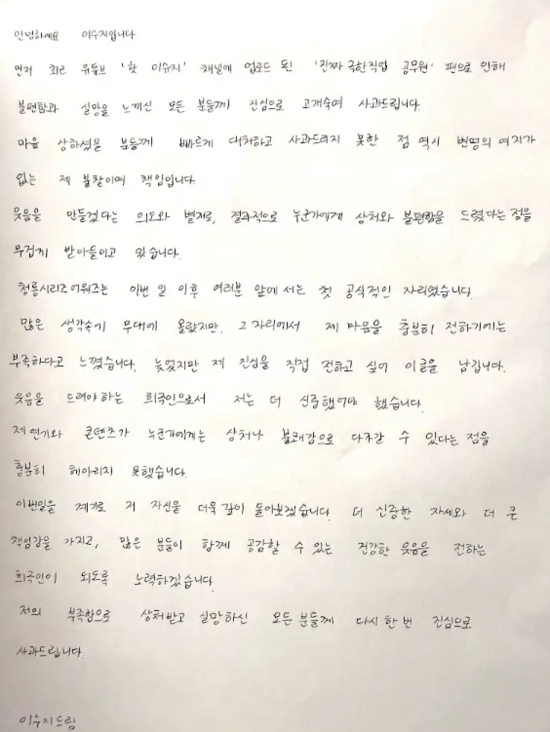 안녕하세요 이수지입니다
먼저 최근 유튜브 '핫 이슈지' 채널에 업로드 된 '진짜 극한직업 공무원' 편으로 인해
불편함과 실망을 느끼신 모든 분들께 진심으로 고개숙여 사과드립니다.
마음 상하셨을 분들께 빠르게 대처하고 사과드리지 못한 점 역시 변명의 여지가
없는 제 불찰이며 책임입니다.
웃음을 만들겠다는 의도와 별개로, 결과적으로 누군가에게 상처와 불편함을 드렸다는 점을
무겁게 받아들이고 있습니다.
청룡시리즈어워즈는 이번 일 이후 여러분 앞에 서는 첫 공식적인 자리였습니다.
많은 생각속에 무대에 올랐지만, 그 자리에서 제 마음을 충분히 전하기에는
부족하다고 느꼈습니다. 늦었지만 제 진심을 직접 전하고 싶어 이글을 남깁니다.
웃음을 드려야하는 희극인으로서 저는 더 신중했어야 했습니다.
제 연기와 콘텐츠가 누군가에게는 상처나 불쾌감으로 다가갈 수 있다는 점을
충분히 헤아리지 못했습니다.
이번일을 계기로 저 자신을 더욱 깊이 돌아보겠습니다. 더 신중한 자세와 더 큰
책임감을 가지고, 많은 분들이 함께 공감할 수 있는 건강한 웃음을 전하는
희극인이 되도록 노력하겠습니다.
저의 부족함으로 상처받고 실망하신 모든 분들께 다시 한 번 진심으로
사과드립니다.
이수지드림